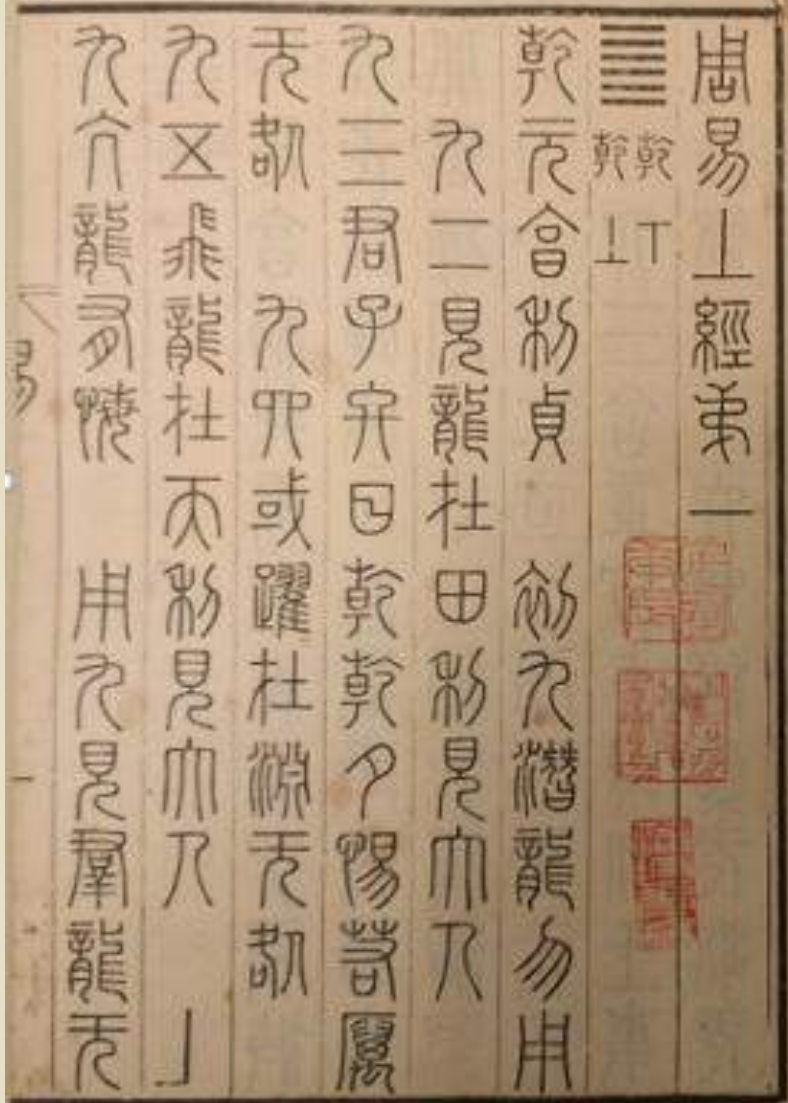 周易上經弟一
䷀ 乾下乾上
乾元亨利貞 初九潛龍勿用
九二見龍在田利見大人
九三君子終日乾乾夕惕若厲
无咎 九四或躍在淵无咎
九五飛龍在天利見大人 上
九亢龍有悔 用九見羣龍无